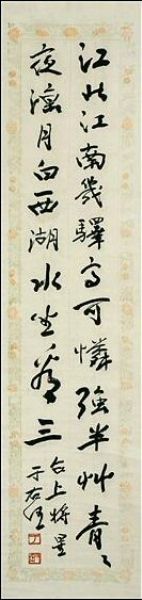 江北江南幾驛亭可憐強半艸青々
夜深月白西湖水坐看三
台上將星
于右任